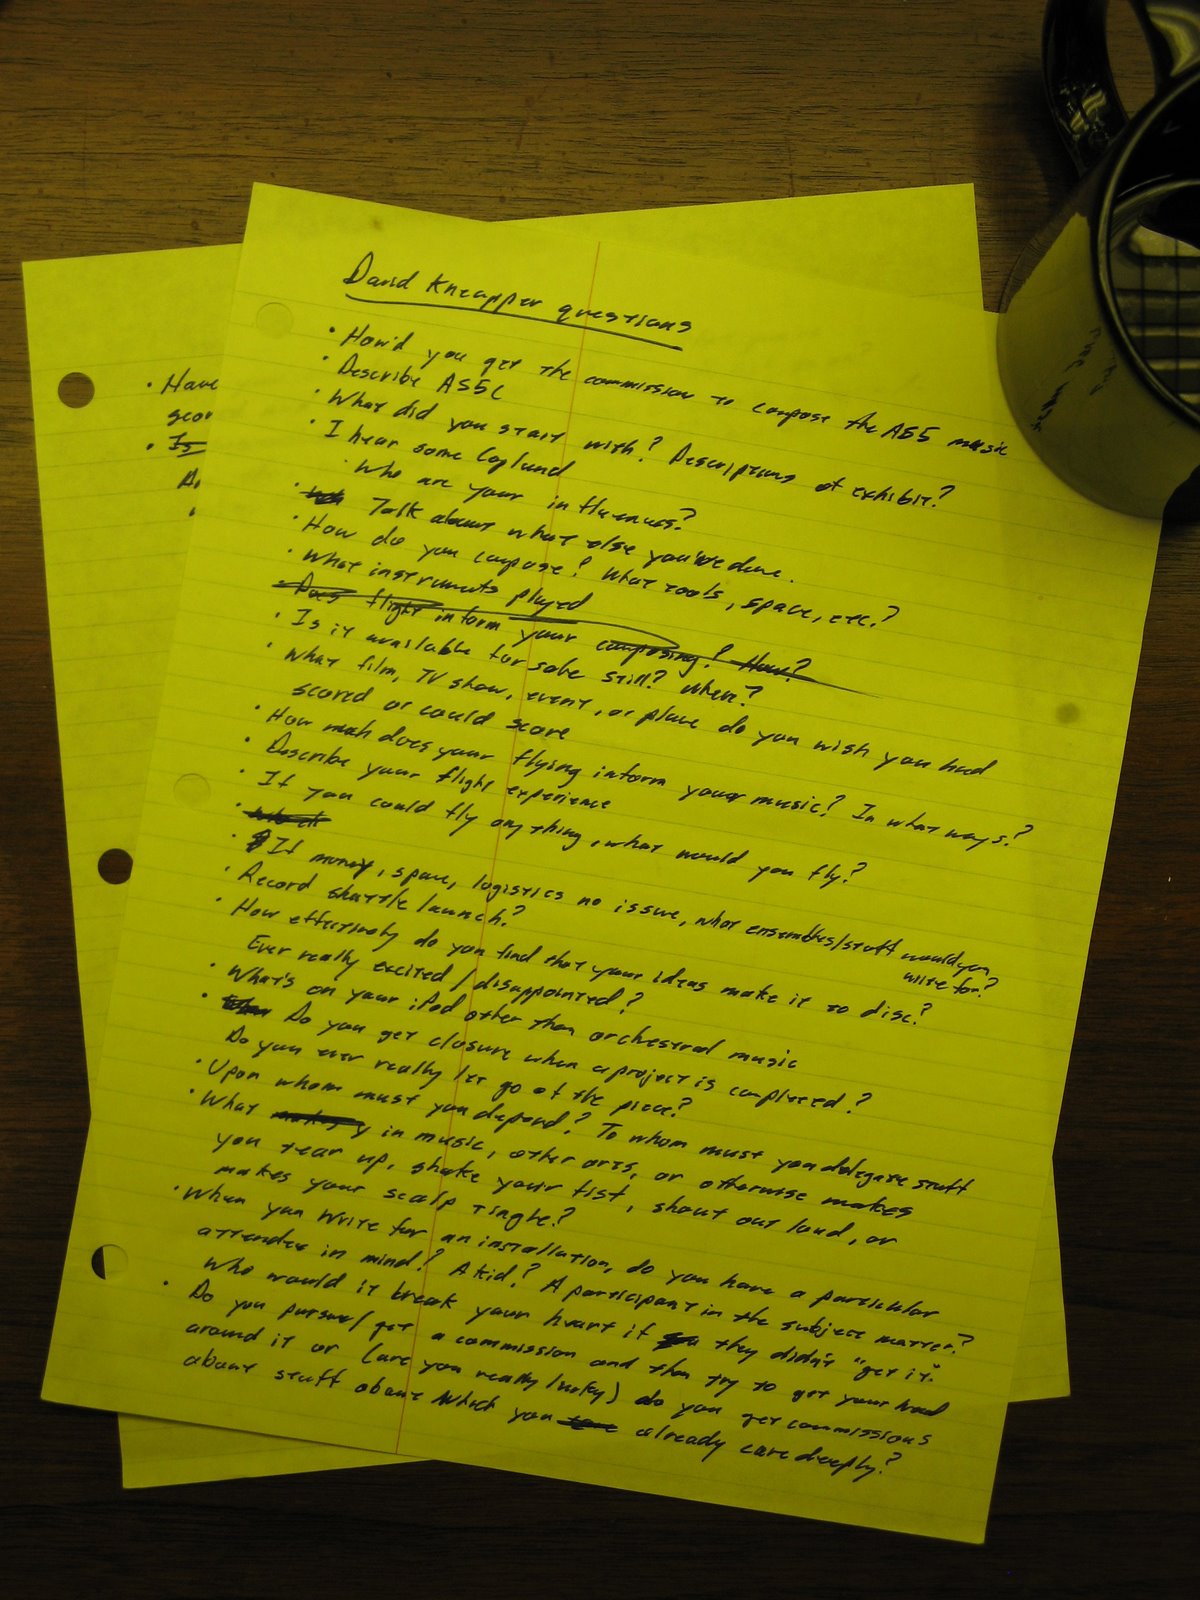 David Kneupper questions
• How'd you get the commission to compose the AS5 music
• Describe AS5C
• What did you start with? Descriptions of exhibit?
• I hear some Copland
• Who are your influences?
• Talk about what else you've done.
• How do you compose? What tools, space, etc.?
• What instruments played
Does flight inform your composing? How?
• Is it available for sale still? Where?
• What film, TV show, event, or place do you wish you had
scored or could score
• How much does your flying inform your music? In what ways?
• Describe your flight experience
• If you could fly anything, what would you fly?
• If money, space, logistics no issue, what ensembles/stuff would you
write for?
• Record shuttle launch?
• How effectively do you find that your ideas make it to disc?
Ever really excited/disappointed?
• What's on your iPod other than orchestral music
• Do you get closure when a project is completed?
Do you ever really let go of the piece?
• Upon whom must you depend? To whom must you delegate stuff
• What in music, other arts, or otherwise makes
you tear up, shake your fist, shout out loud, or
makes your scalp tingle?
• When you write for an installation, do you have a particular
attendee in mind? A kid? A participant in the subject matter?
Who would it break your heart if they didn't "get it."
• Do you pursue/get a commission and then try to get your head
around it or (are you really lucky) do you get commissions
about stuff about which you already care deeply?
• Have
• Is